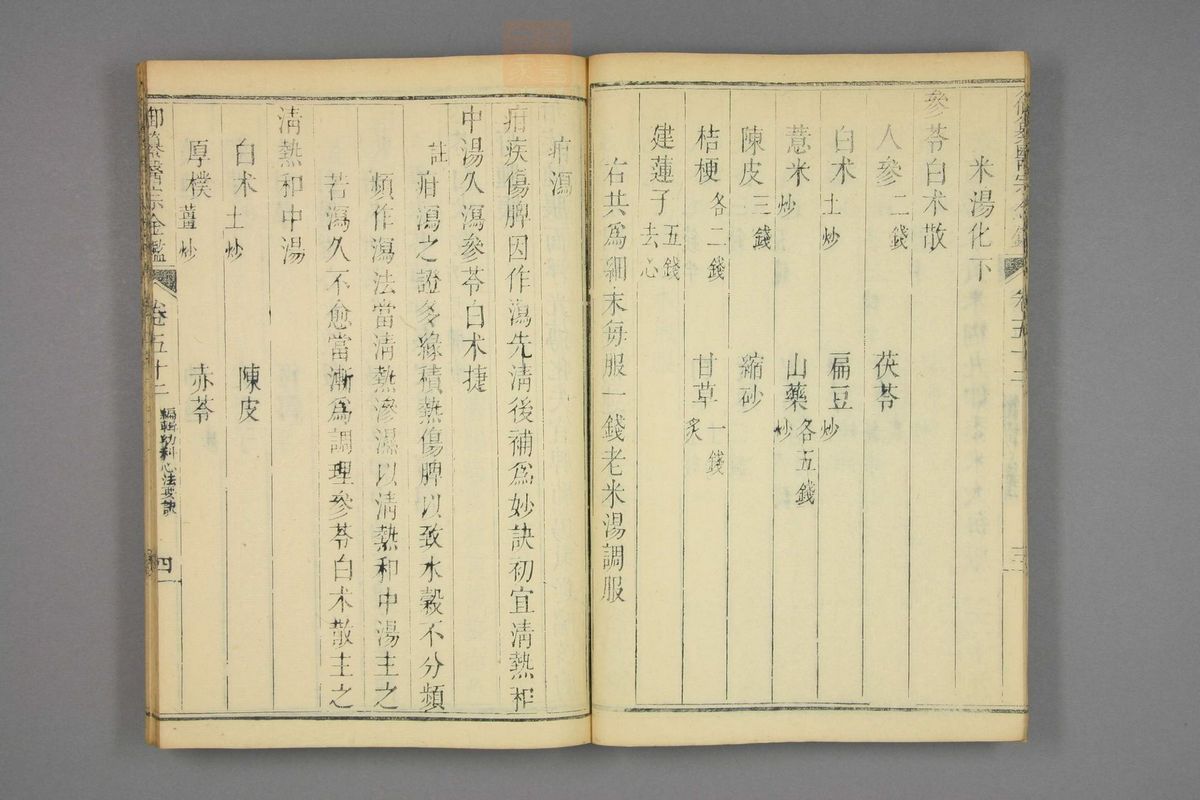 米湯化下
參苓白朮散
人參二錢 茯苓
白朮土炒 扁豆炒
薏米炒 山藥炒各五錢
陳皮三錢 縮砂
桔梗各二錢 甘草炙一錢
建蓮子去心五錢
右共為細末每服一錢老米湯調服
疳瀉
疳疾傷脾因作瀉先清後補為妙訣初宜清熱和
中湯久瀉參苓白朮捷
註疳瀉之證多緣積熱傷脾以致水穀不分頻
頻作瀉法當清熱滲濕以清熱和中湯主之
若瀉久不愈當漸為調理參苓白朮散主之
清熱和中湯
白朮土炒 陳皮
厚樸薑炒 赤苓
御纂醫宗金鑑 卷五十二 編輯幼科心法要訣 四